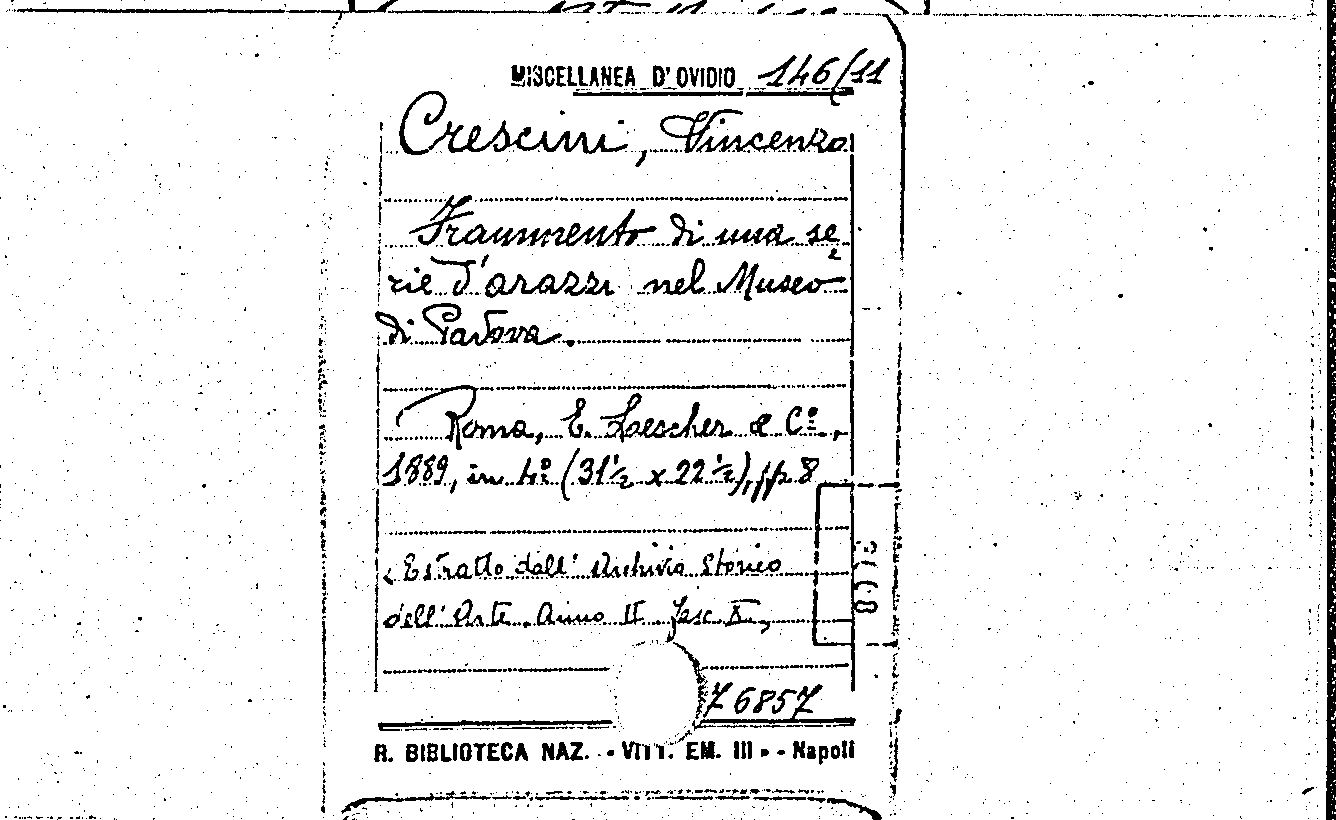 MISCELLANEA D'OVIDIO 146/11
Crescini, Vincenzo
Frammento di una se
rie d'arazzi nel Museo
di Padova.
Roma, E. Loescher & Cº.,
1889, in 4º (31½ x 22½), pp. 8
"Estratto dall'Archivio Storico
dell'Arte. Anno II. Fasc. X.,
76857
R. BIBLIOTECA NAZ. - VITT. EM. III - - Napoli